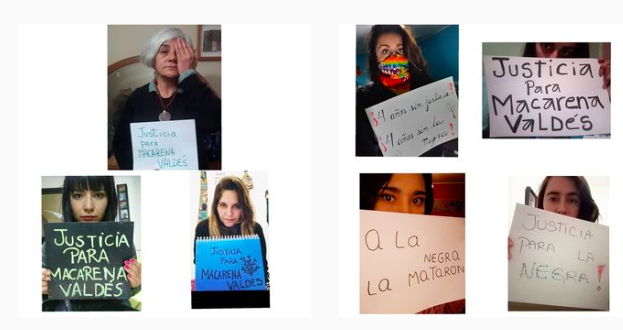 Justicia
para
MACARENA
VALDÉS
JUSTICIA
PARA
MACARENA
VALDÉS
JUSTICIA
PARA
MACARENA
VALDÉS
4 años sin justicia
4 años sin la
negra!
Justicia
Para
Macarena
VaLDés
a La
NEGRA
La MaTaRON
JUSTICIA
PARA LA
NEGRA!